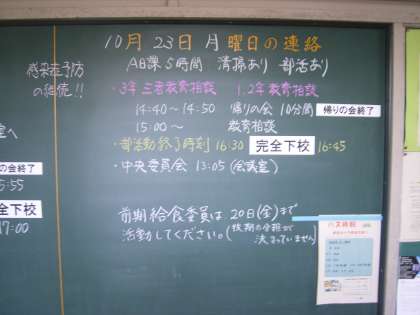 10月23日月曜日の連絡
AB課5時間 清掃あり 部活あり
感染症予防
の継続!!
・3年 三者教育相談 1.2年教育相談
14:40～14:50 帰りの会 10分間 帰りの会終了
15:00～ 教育相談
・部活動終了時刻 16:30 完全下校 16:45
・中央委員会 13:05 (会議室)
室へ
りの会終了
5:55
全下校
17:00
前期給食委員は20日(金)まで
活動してください。(後期の分担が
決まっていません)
バス時刻